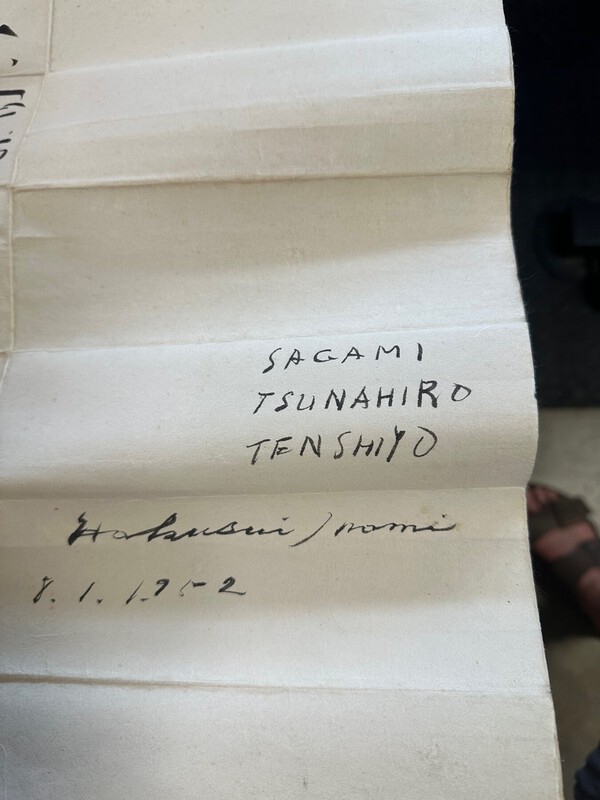 SAGAMI
TSUNAHIRO
TENSHIYO
Hakusui Inomi
8. 1. 1952